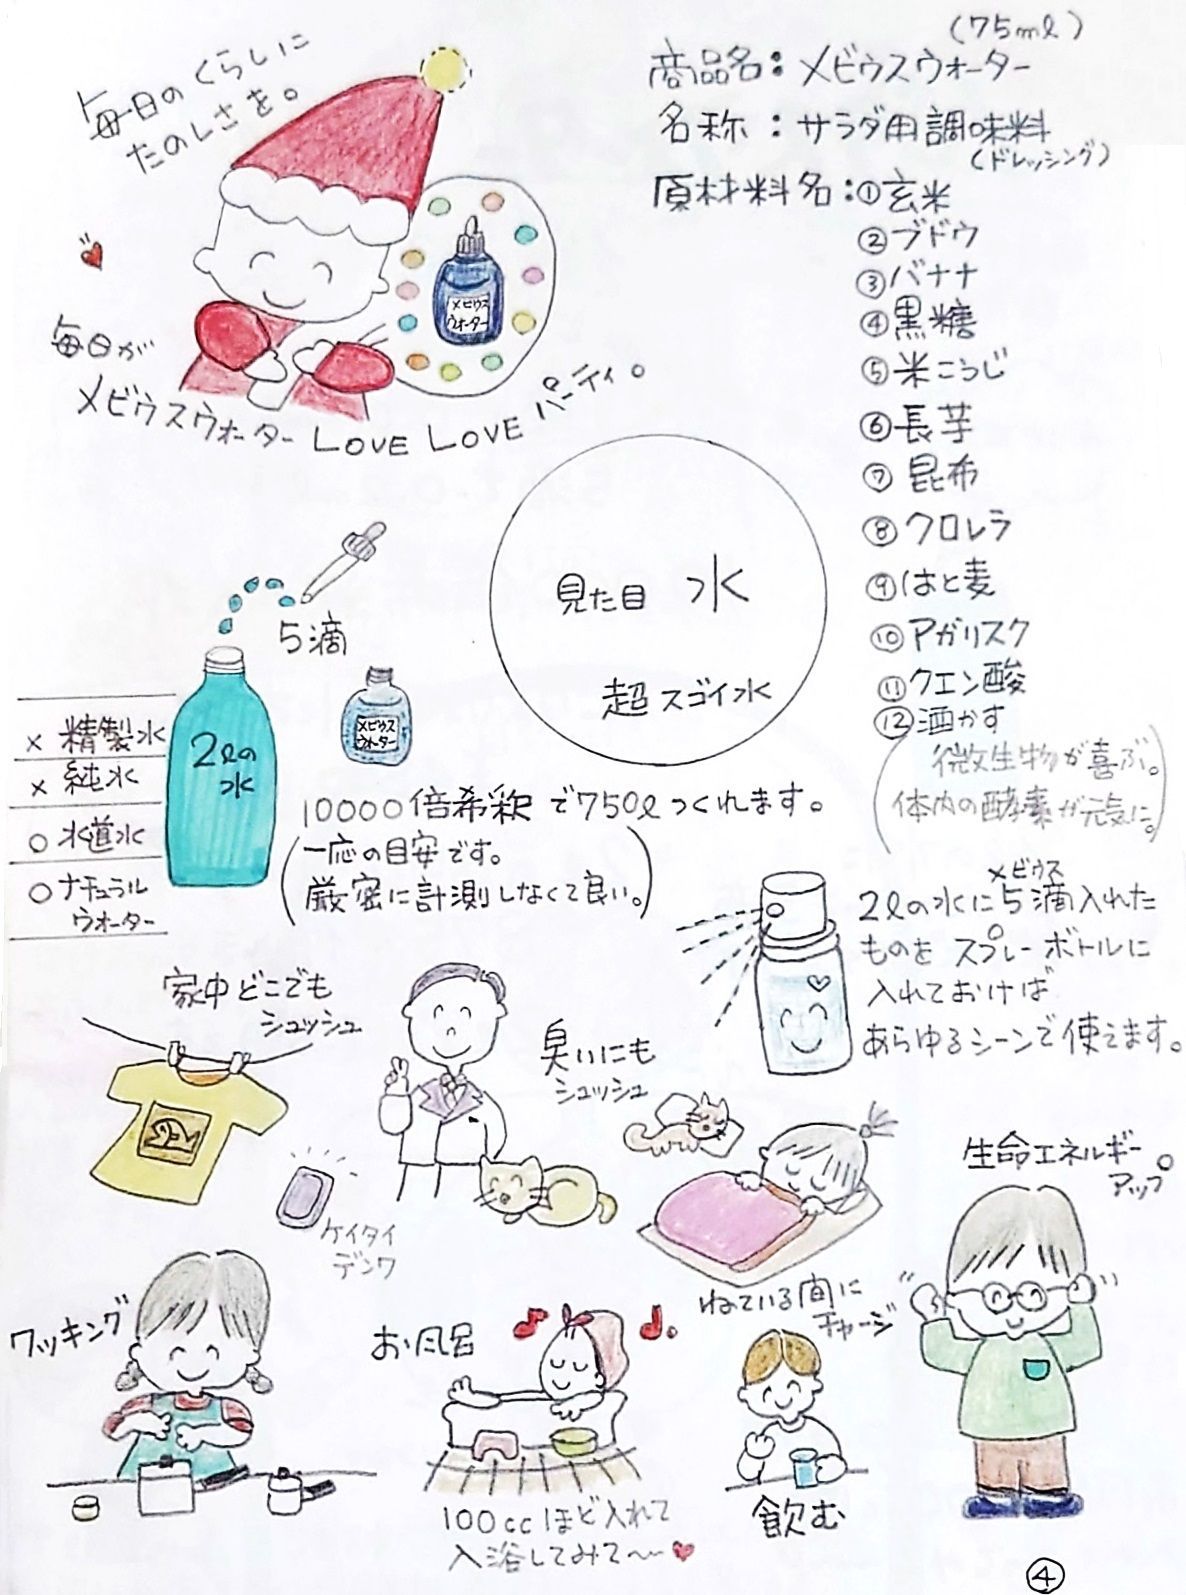 毎日のくらしに
たのしさを。
毎日が
メビウスウォーター LOVE LOVE パーティ。
メビウス
ウォーター
(75ml)
商品名:メビウスウォーター
名称:サラダ用調味料
(ドレッシング)
原材料名:①玄米
②ブドウ
③バナナ
④黒糖
⑤米こうじ
⑥長芋
⑦昆布
⑧クロレラ
⑨はと麦
⑩アガリスク
⑪クエン酸
⑫酒かす
(微生物が喜ぶ。
体内の酵素が元気に。)
見た目 水
超スゴイ水
5滴
2lの
水
メビウス
ウォーター
×精製水
×純水
○水道水
○ナチュラル
ウォーター
10000倍希釈で750lつくれます。
(一応の目安です。
厳密に計測しなくて良い。)
メビウス
2lの水に5滴入れた
ものをスプレーボトルに
入れておけば
あらゆるシーンで使えます。
家中どこでも
シュッシュ
臭いにも
シュッシュ
ケイタイ
デンワ
ねている間に
チャージ
生命エネルギー
アップ。
クッキング
お風呂
100ccほど入れて
入浴してみて〜
飲む
④